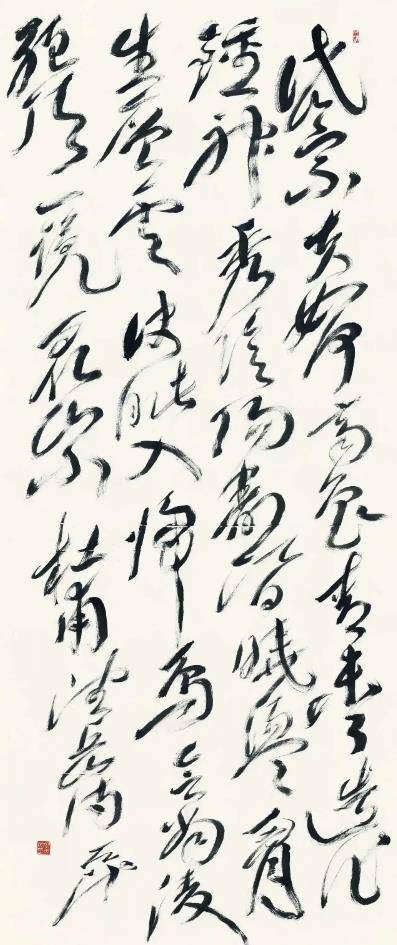 岱宗夫如何齊魯青未了造化
鍾神秀陰陽割昏曉盪胷
生層雲決眦入歸鳥會當凌
絕頂一覽衆山小 杜甫望岳詩